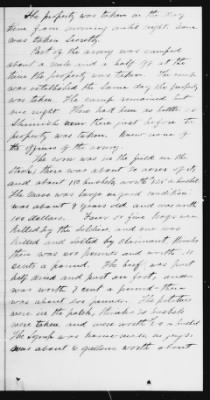 The property was taken in the day
time from morning until night. some
was taken secretly
Part of the army was camped
about a mile and a half off at the
time the property was taken. The camp
was established the same day the property
was taken. The camp remained there
one night. There had been no battle or
skirmish near there just before the
property was taken. Knew none of
the officers of the army.
The corn was in the field on the
stalk, there was about 20 acres of it,
and about 150 bushels worth a bushel
The horse was large in good condition
was about 9 years old and was worth
100 dollars. Four or five hogs were
killed by the soldiers and one was
killed and salted by claimant thinks
there was 800 pounds and worth 10
cents a pound. The beef was part
half dried and part on foot, and
was worth 7 cent a pound - there
was about 200 pounds. The potatoes
were in the patch, thinks 10 bushels
were taken and were worth a bushel
The syrup was home-made in jugs
was about 6 gallons worth about